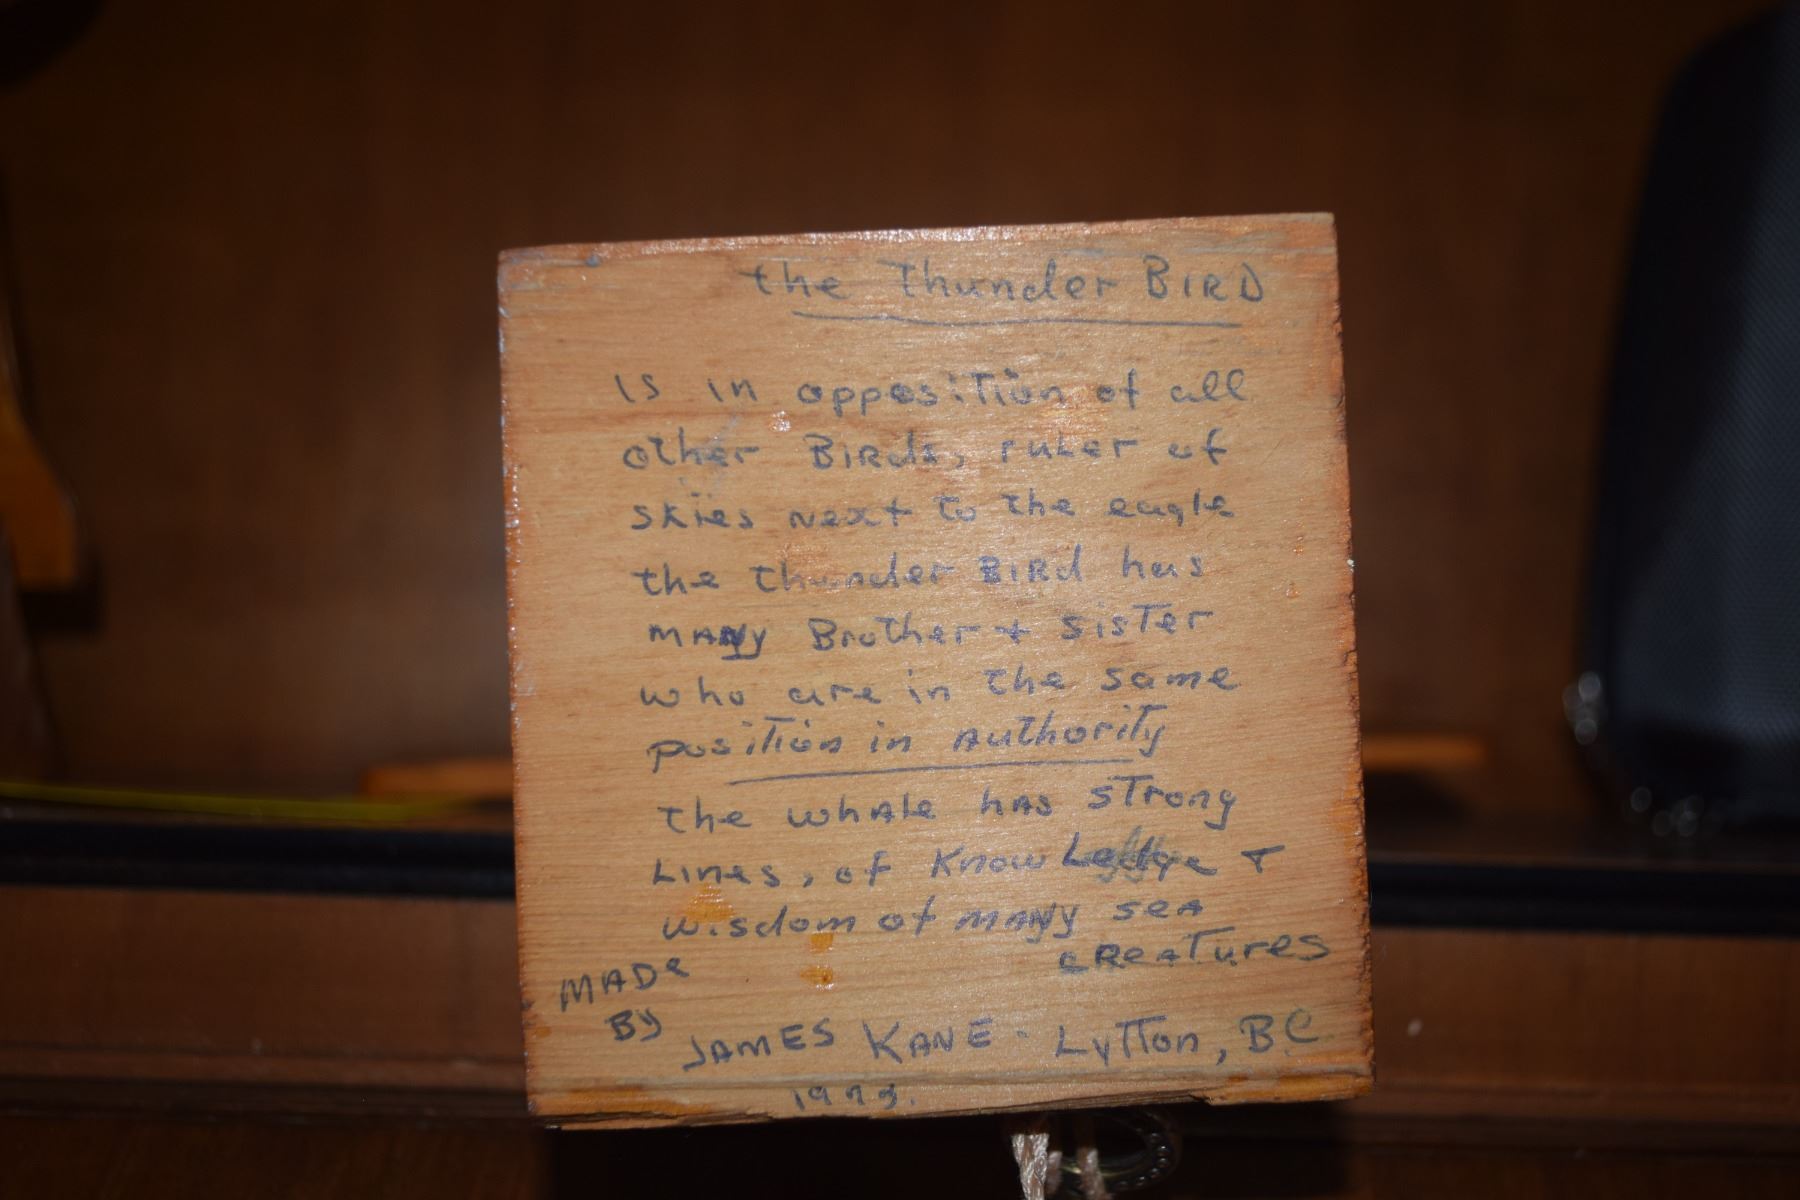 the Thunder BIRD
is in opposition of all
other BIRds, ruler of
skies Next to the eagle
the thunder BIRd has
MANy Brother + sister
who are in the same
position in Authority
the whAle hAs strong
Lines, of KnowLedge +
wisdom of mANy seA
cReAtures
MADe
By
JAMES KANE - Lytton, BC
1973.